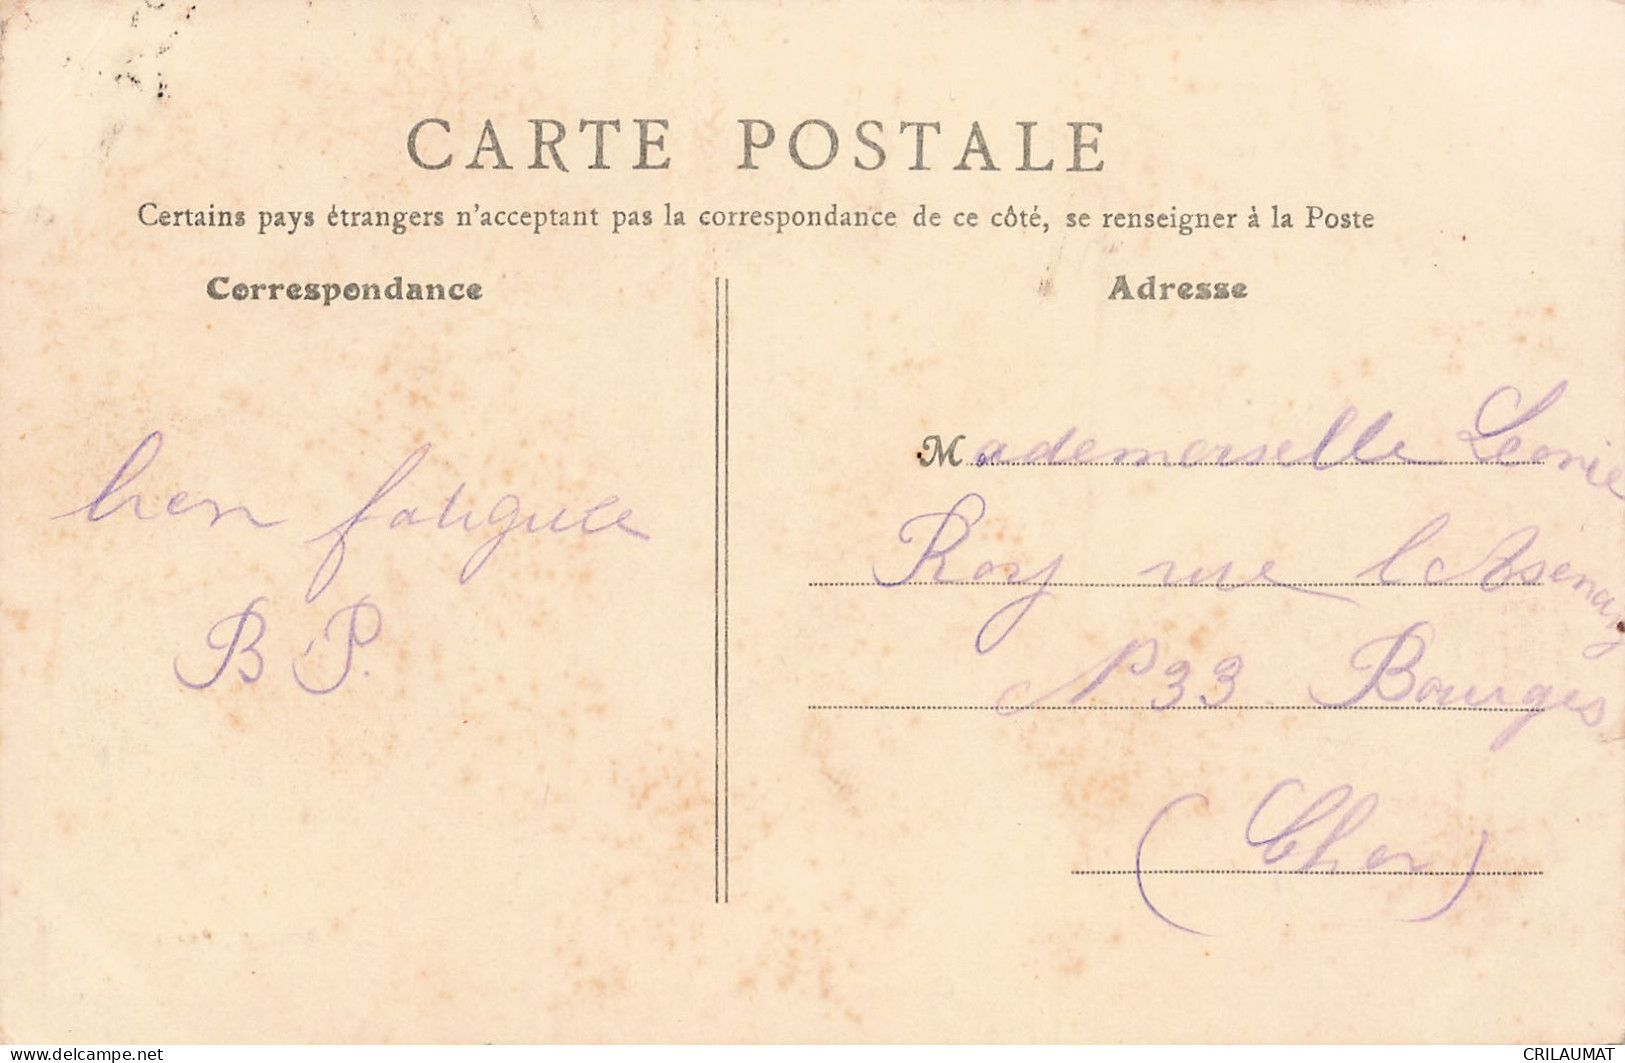 CARTE POSTALE
Certains pays étrangers n'acceptant pas la correspondance de ce côté, se renseigner à la Poste
Correspondance
Adresse
bien fatiguée
B P.
Mademoiselle Leonie
Roy rue l'Arsenay
N° 33 Bourges
(Cher)
www.delcampe.net
CRILAUMAT